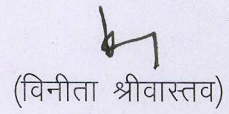 (विनीता श्रीवास्तव)